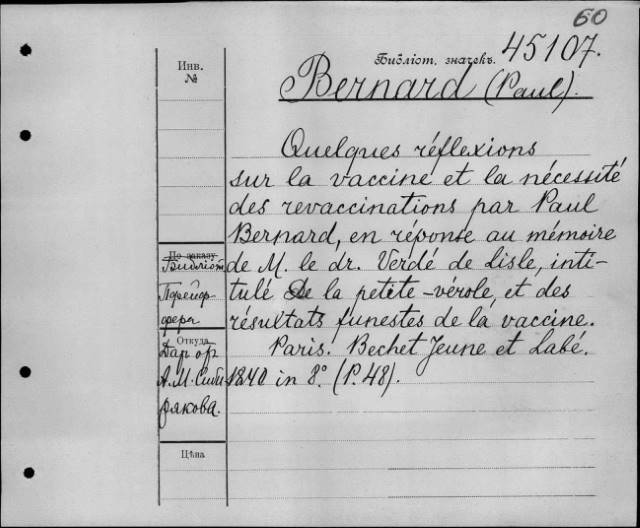 60
Библіот. значекъ. 45107.
Инв.
№
Bernard (Paul).
Quelques réflexions
sur la vaccine et la nécessité
des revaccinations par Paul
Bernard, en réponse au mémoire
de M. le dr. Verdé de Lisle, inti-
tulé de la petite-vérole, et des
résultats funestes de la vaccine.
Paris. Bechet Jeune et Labé.
1840 in 8º. (P. 48).
По заказу
Библіот.
Пфейф-
фера
Откуда
Дар от
А.М. Сиби-
рякова.
Цѣна